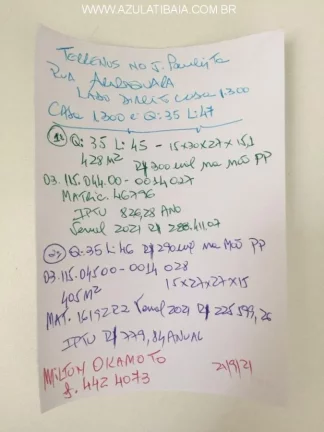 WWW.AZULATIBAIA.COM.BR
TERRENOS NO J. Paulista
RUA ARARAQUARA
LADO DIREITO CASA 1300
CASA 1300 É Q: 35 L: 47
1º Q: 35 L: 45 - 15x30x27x15,1
428 M² R$ 300 mil na mão PP
03.115.044.00-0014027
MATRIC. 46796
IPTU 826,28 ANO
Venal 2021 R$
2º Q: 35 L: 46 R$ 290 mil na mão PP
03.115.04500-0014 028
405 M² 15x27x27x15
MAT. Venal 2021 R$ 225599,26
IPTU R$ 779,84 ANUAL
MILTON OKAMOTO
f. 442 4073
21/9/21